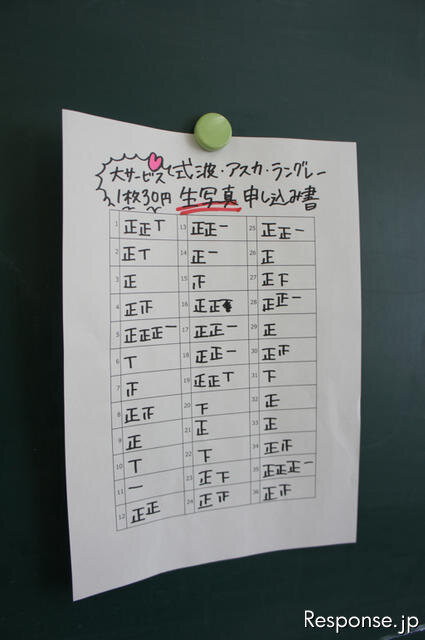 大サービス 式波・アスカ・ラングレー
1枚30円 生写真 申し込み書
1 正正丅
2 正丅
3 正
4 正𤴓
5 正正正一
6 丅
7 𤴓
8 正𤴓
9 正
10 丅
11 一
12 正正
13 正正一
14 正一
15 𤴓
16 正正
17 正正一
18 正正一
19 正正丅
20 下
21 正
22 下
23 正下
24 正𤴓
25 正正一
26 正
27 正下
28 正正一
29 正
30 正𤴓
31 下
32 正
33 正
34 正𤴓
35 正正正一
36 正𤴓
Response.jp